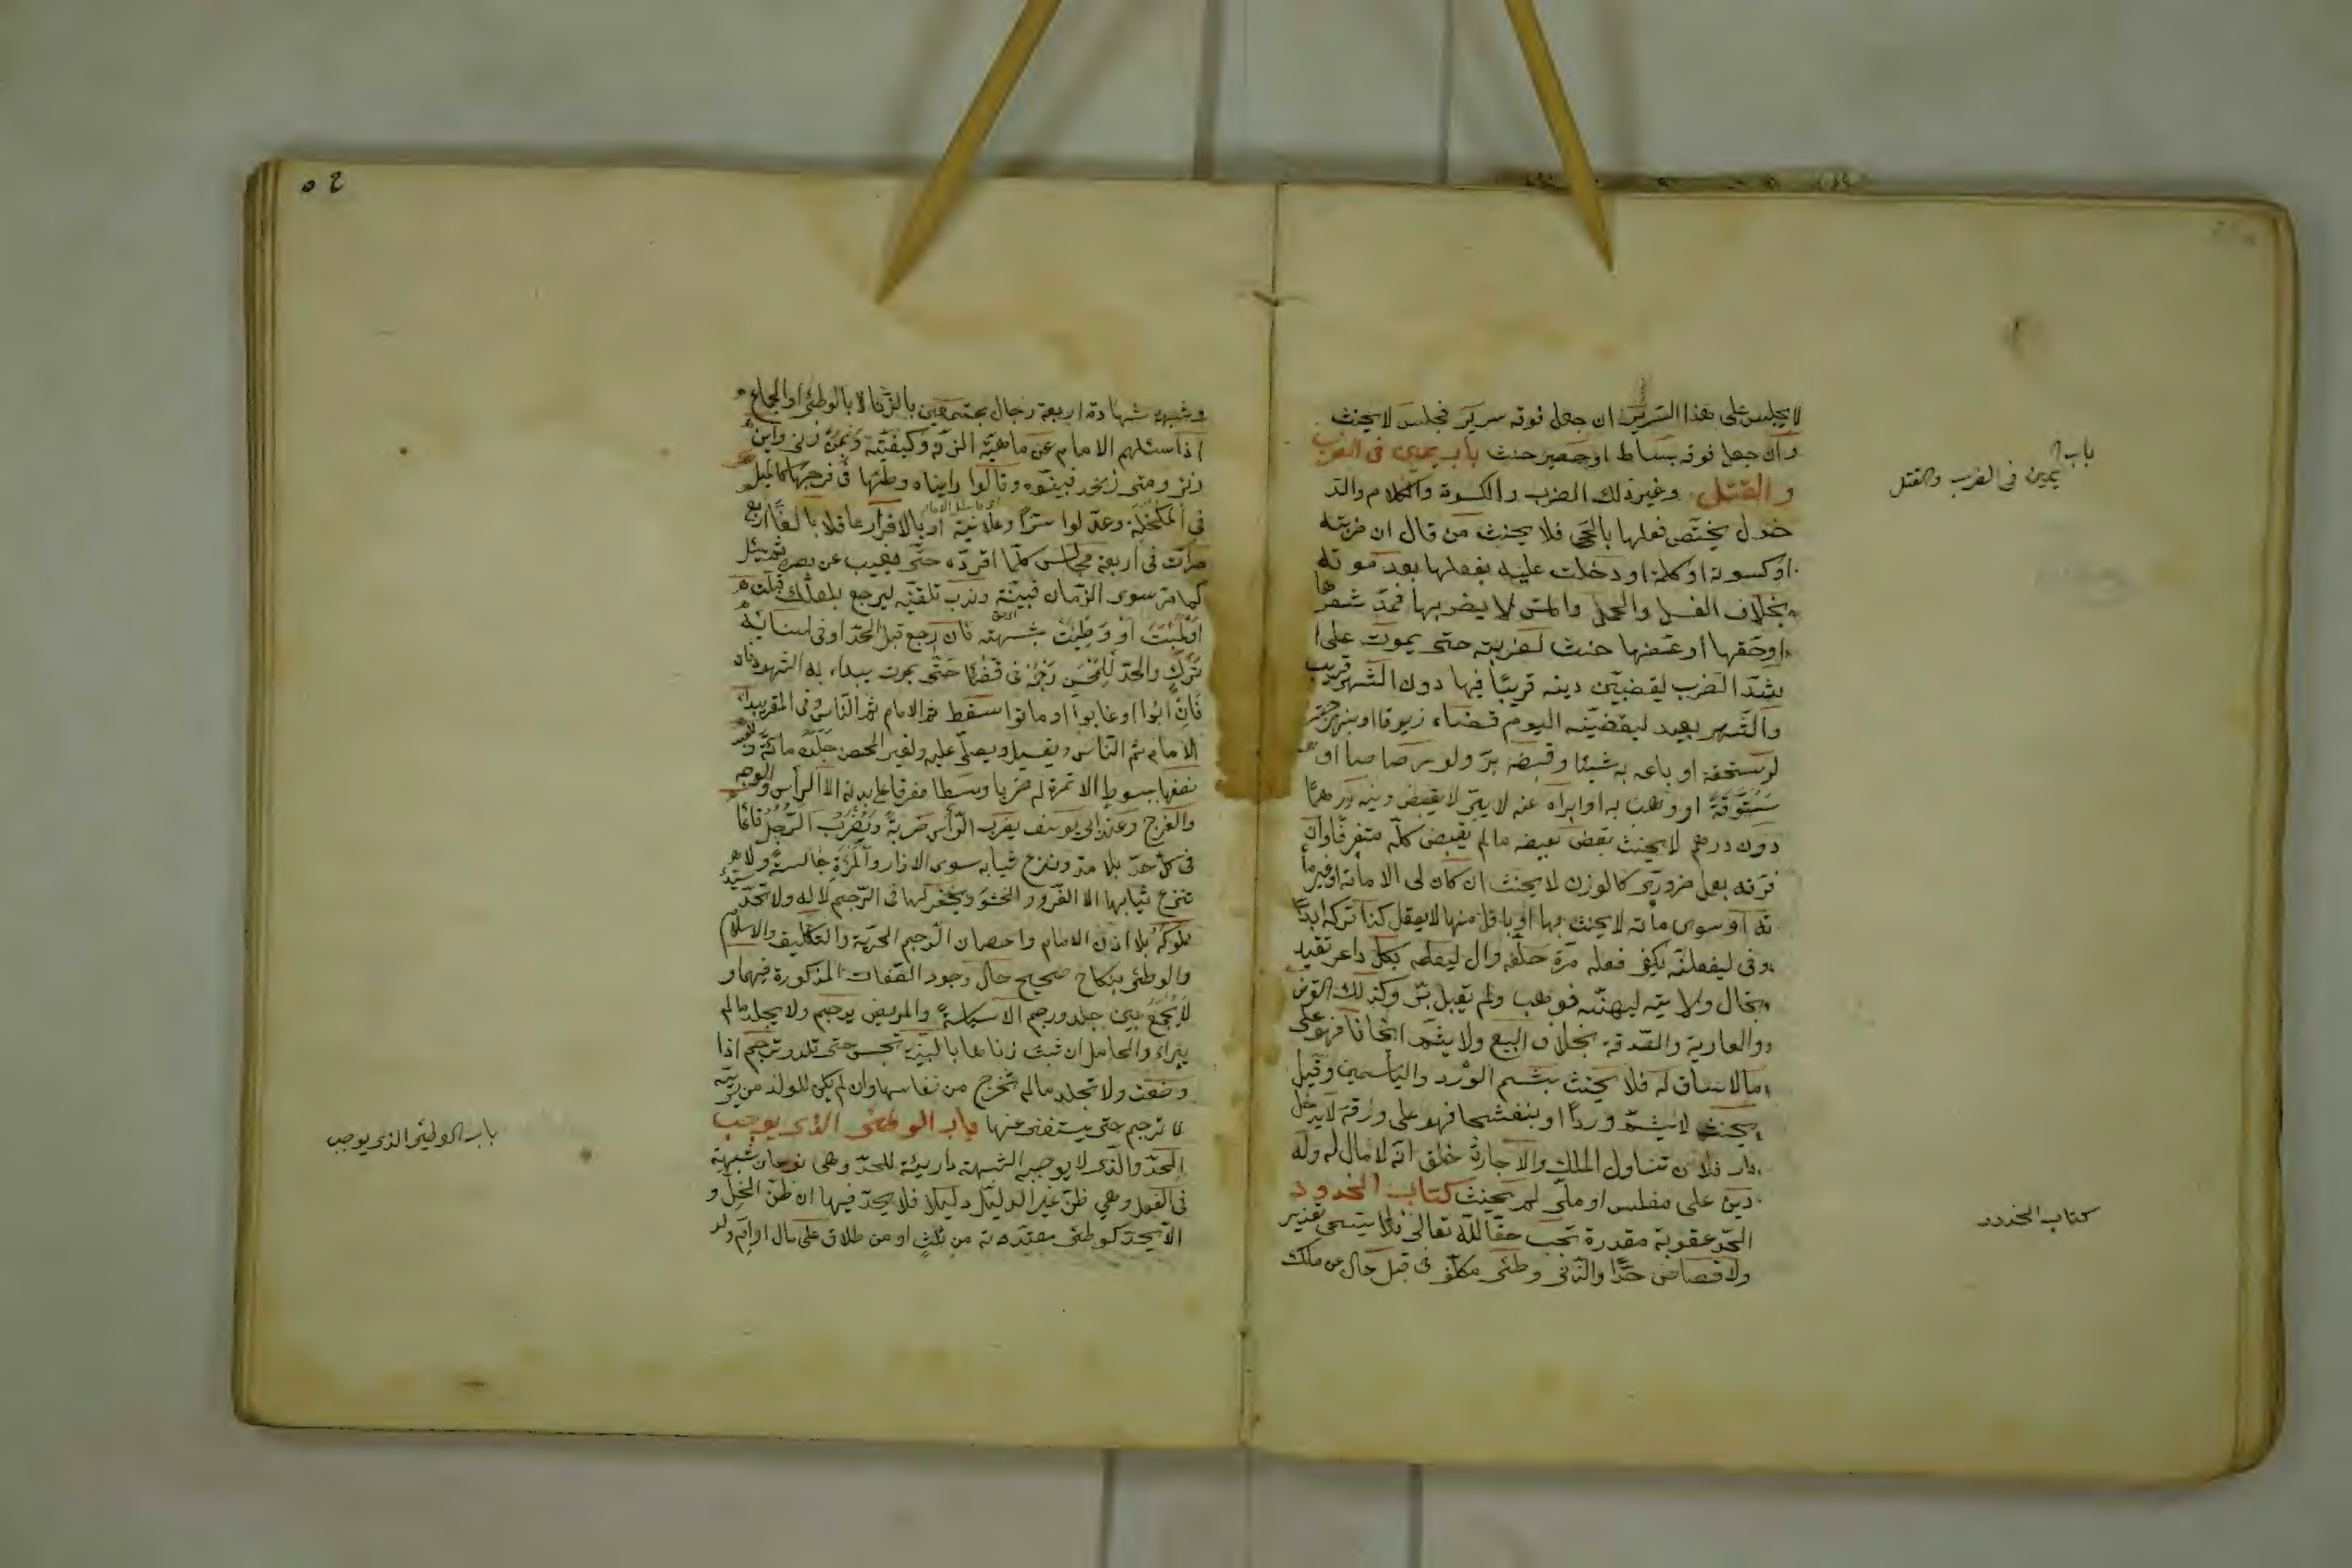 لا يجلس على هذا السرير ان جعل فوقه سرير فجلس لا يحنث
وان جعل فوقه بساط او حصير حنث باب يمين فى الضرب
والقتل وغير ذلك الضرب والكسوة والكلام والد
خول يختص فعلها بالحى فلا يحنث من قال ان ضربته
او كسوته او كلمته او دخلت عليه بفعلها بعد موته
بخلاف الغسل والحمل والمس لا يضربها فمد شعرها
او خنقها او عضها حنث لضربته حتى يموت على ا
شد الضرب ليقضين دينه قريبا فيها دون الشهر قريب
والشهر بعيد ليقضينه اليوم فقضاه زيوفا او بنهرجة
او مستحقة او باعه به شيئا وقبضه بر ولو رصاصا او
ستوقة او وهب به او ابراه عنه لا يبر لا يقبض دينه درهما
دون درهم لا يحنث بقبض بعضه ما لم يقبض كله متفرقا وان
فرقه بعمل ضرورى كالوزن لا يحنث ان كان لى الا مائة او غير ما
ئة او سوى مائة لا يحنث بها او باقل منها لا يفعل كذا تركه ابدا
وفى ليفعلنه يكفى فعله مرة حلفه وال ليعلمه بكل داعر تقيد
بحال ولايته ليهبنه فوهب ولم يقبل بر وكذلك القرض
والعارية والصدقة بخلاف البيع ولا يشم ريحانا فهو على
ما لا ساق له فلا يحنث بشم الورد والياسمين وقيل
يحنث لا يشم وردا او بنفسجا فهو على ورقه لا يدخل
دار فلان تتناول الملك والاجارة حلف انه لا مال له وله
دين على مفلس او ملى لم يحنث كتاب الحدود
الحد عقوبة مقدرة تجب حقا لله تعالى فلا يسمى تعزير
ولا قصاص حدا والزنى وطئ مكلف فى قبل خال عن ملك
باب يمين فى الضرب والقتل
كتاب الحدود
٥٤
وشبهه شهادة اربعة رجال مجتمعين بالزنا لا بالوطئ او الجماع
اذا سئلهم الامام عن ماهية الزنى وكيفيته وبمن زنى واين
زنى ومتى زنى فبينوه وقالوا رايناه وطئها فى فرجها كالميل
فى المكحلة وعدلوا سرا وعلانية او بالاقرار عاقلا بالغا اربع
مرات فى اربعة مجالس كلما اقر رده حتى يغيب عن بصره ثم يسئل
كما مر سوى الزمان فبينه وندب تلقينه ليرجع بلعلك قبلت
او لمست او وطئت بشبهة فان رجع قبل الحد او فى اثنائه
ترك والحد للمحصن رجمه فى فضاء حتى يموت يبداء به الشهود
فان ابوا او غابوا او ماتوا سقط ثم الامام ثم الناس وفى المقر يبداء
الامام ثم الناس ويغسل ويصلى عليه ولغير المحصن جلده مائة
نصفها بسوط لا ثمرة له ضربا وسطا مفرقا على بدنه الا الرأس والوجه
والفرج وعند ابى يوسف يضرب الرأس ضربة ويضرب الرجل قائما
فى كل حد بلا مد وينزع ثيابه سوى الازار والمرءة جالسة ولا
تنزع ثيابها الا الفرو والحشو ويحفر لها فى الرجم لا له ولا يحد سيد
مملوكه بلا اذن الامام واحصان الرجم الحرية والتكليف والاسلام
والوطئ بنكاح صحيح حال وجود الصفات المذكورة فيهما و
لا يجمع بين جلد ورجم الا سياسة والمريض يرجم ولا يجلد ما لم
يبراء والحامل ان ثبت زناها بالبينة تحبس حتى تلد وترجم اذا
وضعت ولا تجلد ما لم تخرج من نفاسها وان لم يكن للولد من يربيه
لا ترجم حتى يستغنى عنها باب الوطئ الذى يوجب
الحد والذى لا يوجبه الشبهة دارئة للحد وهى نوعان شبهة
فى الفعل وهى ظن غير الدليل دليلا فلا يحد فيها ان ظن الحل و
الا يحد كوطئ معتدته من ثلث او من طلاق على مال او ام ولد
باب الوطئ الذى يوجب